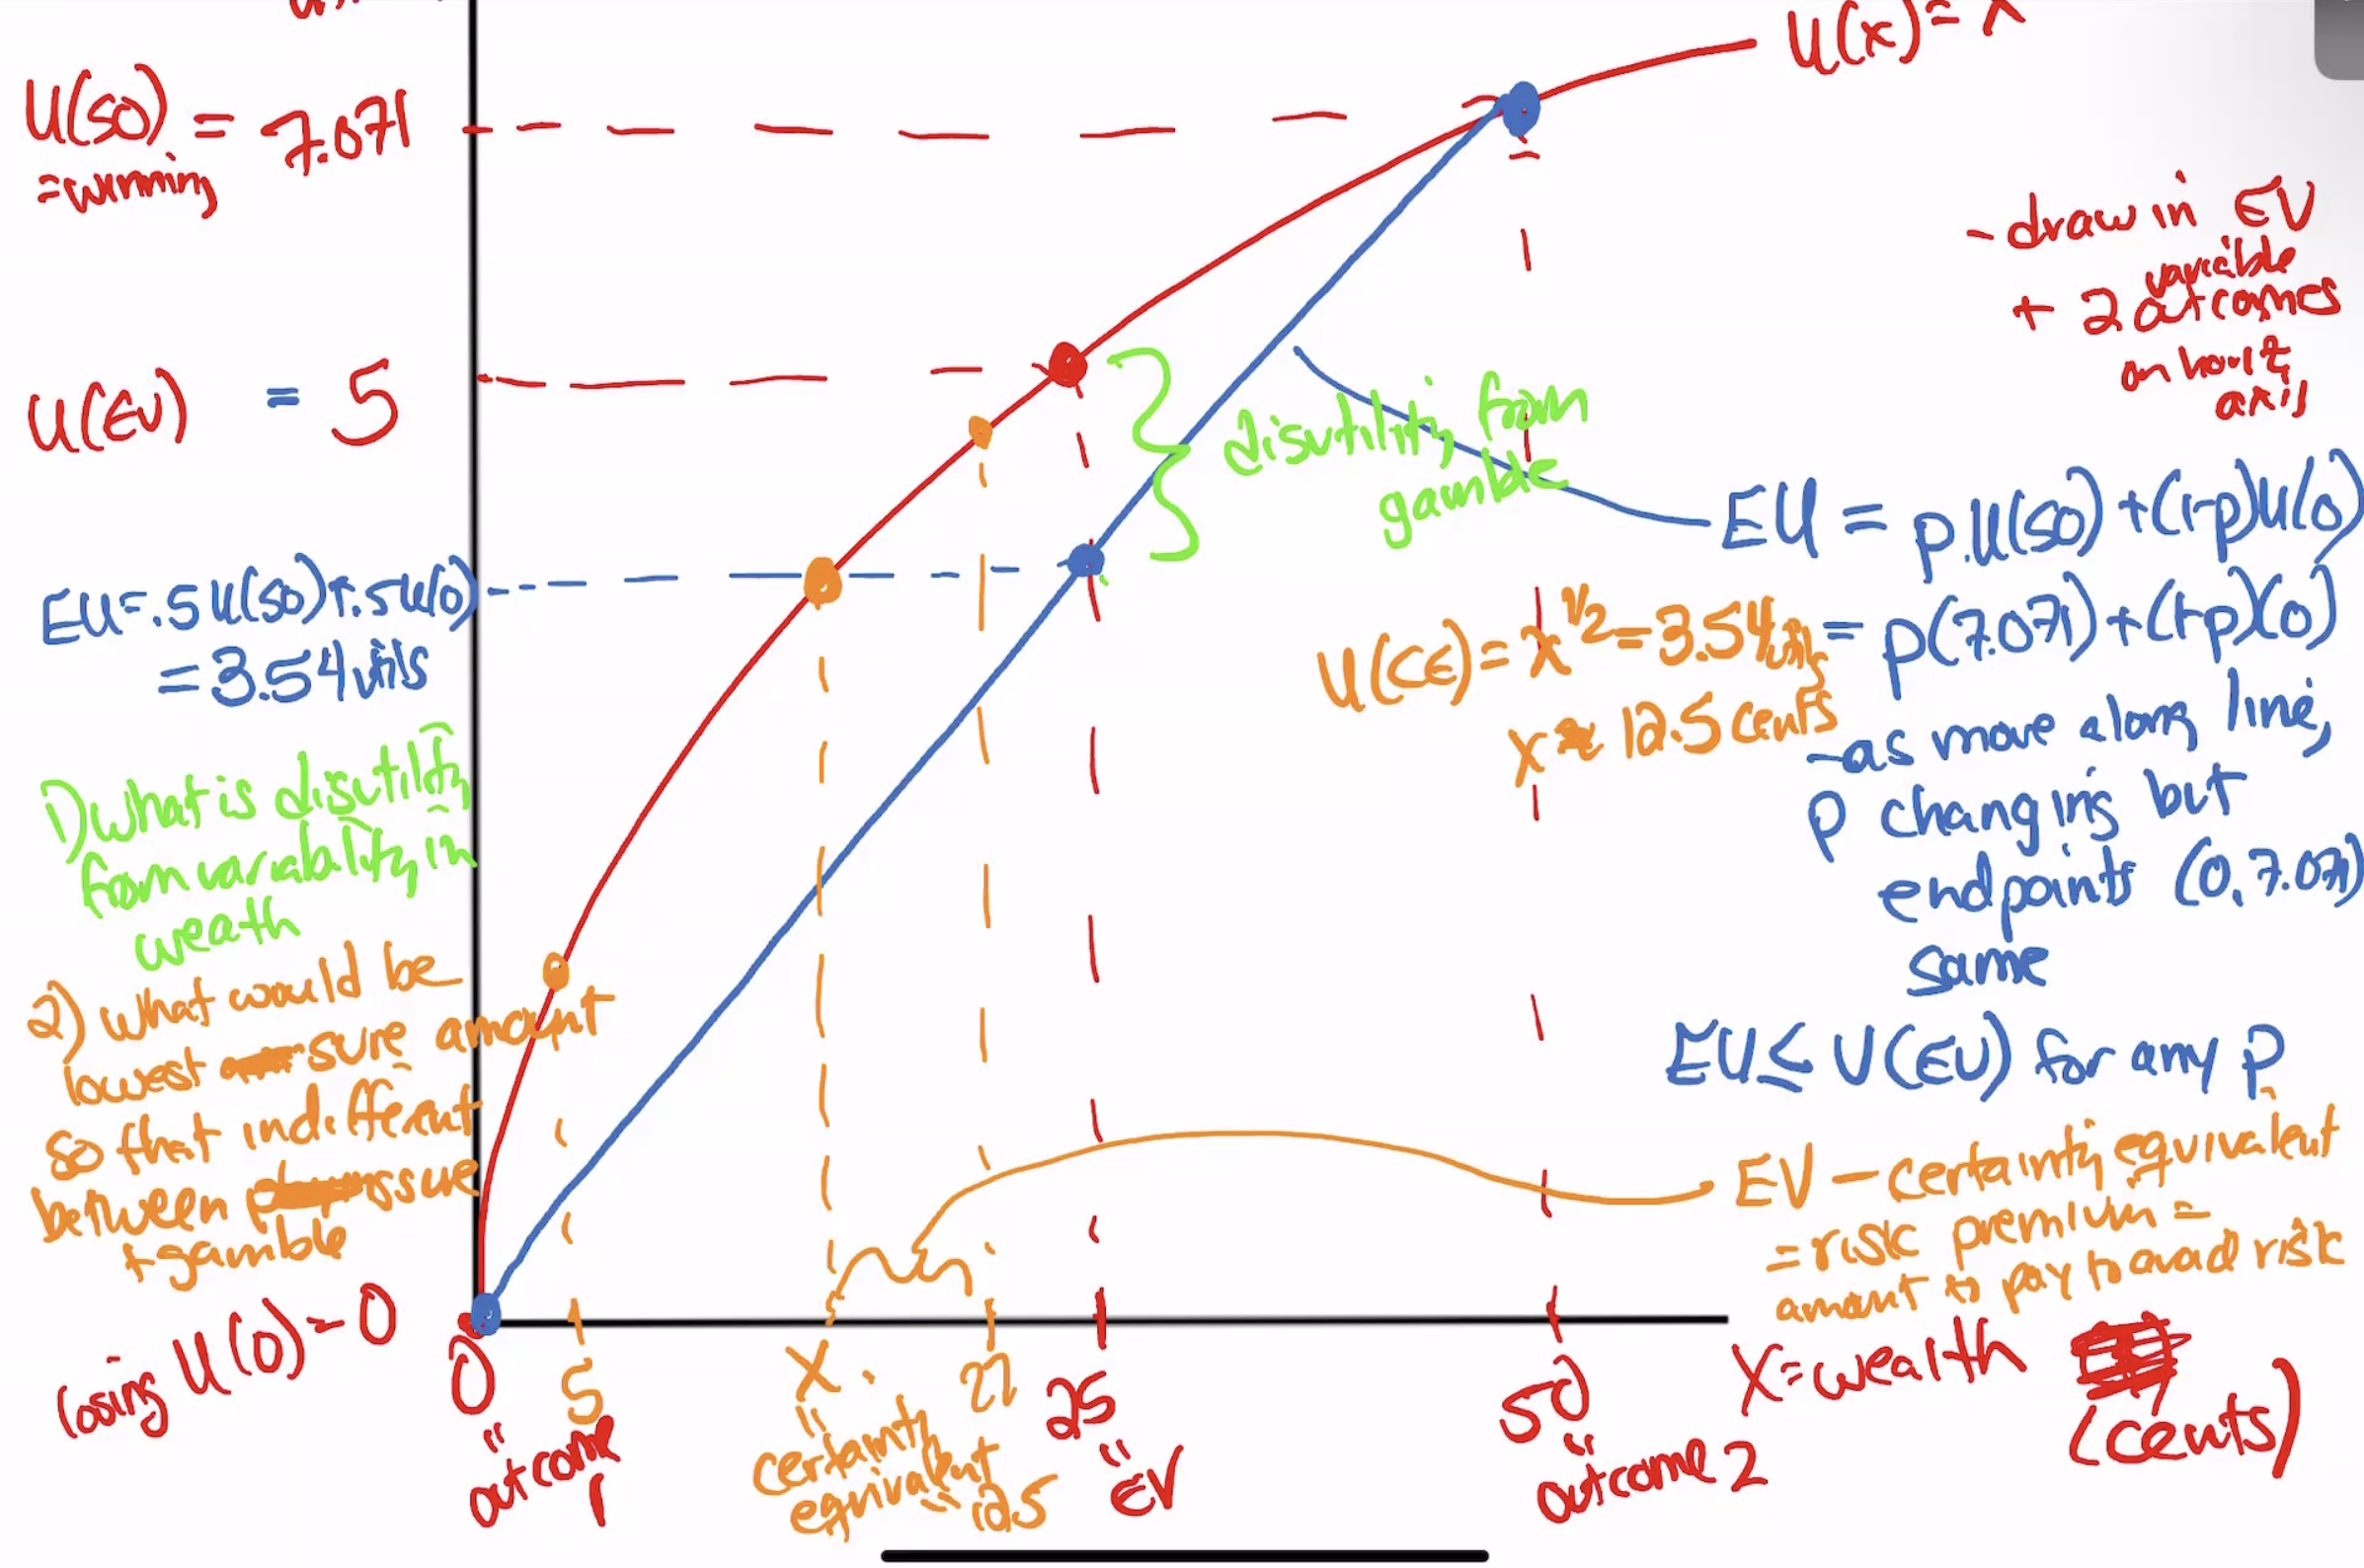 U(x) = x
U(50) = 7.071
=winning
- draw in EV
variable
+ 2 outcomes
on horiz
axis
U(EV) = 5
disutility from
gamble
EU = p.U(50) + (1-p)U(0)
EU = .5U(50)+.5U(0)
= 3.54 utils
U(CE) = x^1/2 = 3.54 utils
x ≈ 12.5 cents
= p(7.071) + (1-p)(0)
-as move along line,
p changing but
endpoints (0, 7.071)
same
1) What is disutility
from variability in
weath
2) what would be
lowest sure amount
so that indifferent
between sure
+ gamble
EU ≤ U(EV) for any p
EV - certainty equivalent
= risk premium =
amount to pay to avoid risk
losing U(0) = 0
0
"
outcome
1
5
X.
"
certainty
equivalent
= 12.5
22
25
"
EV
50
"
outcome 2
X = wealth
(cents)